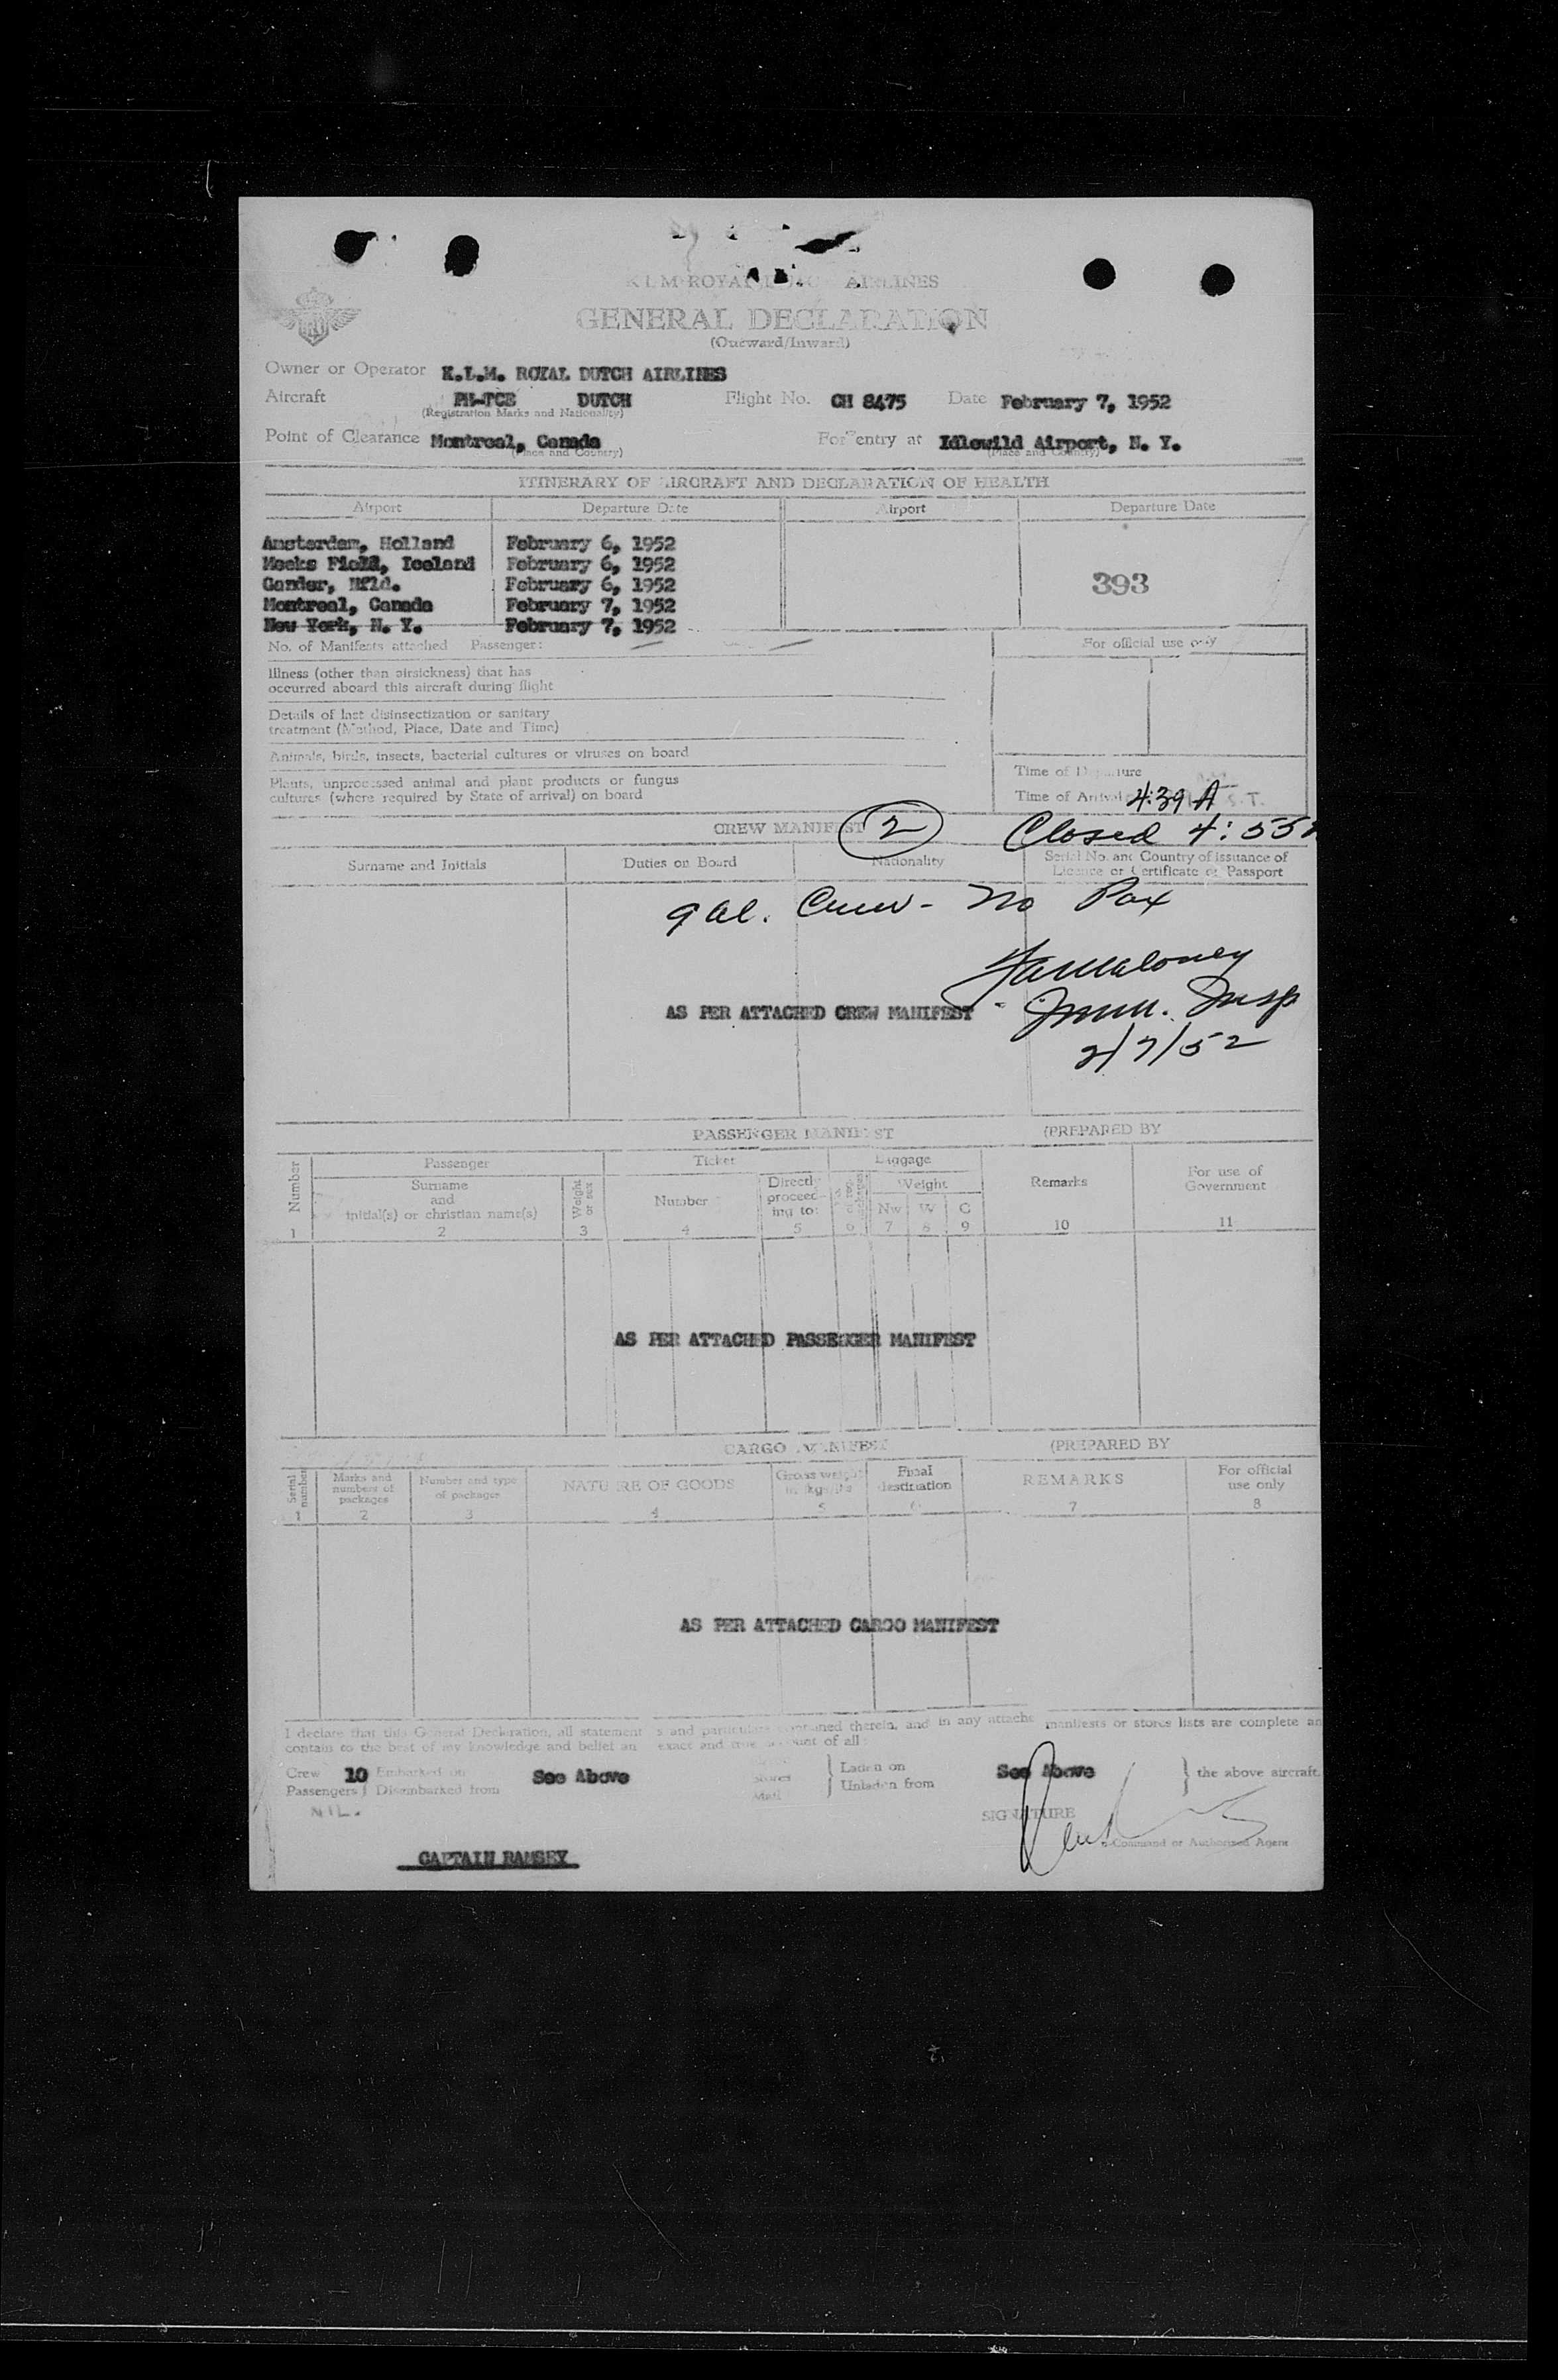 K L M ROYAL AIRLINES
GENERAL DECLARATION
(Outward/Inward)
Owner or Operator K.L.M. ROYAL DUTCH AIRLINES
Aircraft PH-TCE DUTCH Flight No. CH 8475 Date February 7, 1952
(Registration Marks and Nationality)
Point of Clearance Montreal, Canada For entry at Idlewild Airport, N. Y.
(Place and Country) (Place and Country)
ITINERARY OF AIRCRAFT AND DECLARATION OF HEALTH
Airport Departure Date Airport Departure Date
Amsterdam, Holland February 6, 1952
Meeks Field, Iceland February 6, 1952
Gander, Nfld. February 6, 1952
393
Montreal, Canada February 7, 1952
New York, N. Y. February 7, 1952
No. of Manifests attached Passenger:
For official use only
Illness (other than airsickness) that has
occurred aboard this aircraft during flight
Details of last disinsectization or sanitary
treatment (Method, Place, Date and Time)
Animals, birds, insects, bacterial cultures or viruses on board
Plants, unprocessed animal and plant products or fungus
cultures (where required by State of arrival) on board
Time of Departure
Time of Arrival 4:39 A S.T.
CREW MANIFEST 2 Closed 4:55
Surname and Initials Duties on Board Nationality Serial No. and Country of issuance of
Licence or Certificate or Passport
9 al. Crew - No Pax
Maloney
AS PER ATTACHED CREW MANIFEST Imm. Insp
2/7/52
PASSENGER MANIFEST (PREPARED BY
Number Passenger Ticket Luggage Remarks For use of
Government
Surname
and
initial(s) or christian name(s)
Weight or sex
Number
Directly
proceed-
ing to:
Weight
Nw W C
1 2 3 4 5 6 7 8 9 10 11
AS PER ATTACHED PASSENGER MANIFEST
CARGO MANIFEST (PREPARED BY
Serial number
Marks and
numbers of
packages
Number and type
of packages
NATURE OF GOODS
Gross weight
in kgs/lbs
Final
destination
REMARKS
For official
use only
1 2 3 4 5 6 7 8
AS PER ATTACHED CARGO MANIFEST
I declare that this General Declaration, all statements and particulars contained therein, and in any attache manifests or stores lists are complete an
contain to the best of my knowledge and belief an exact and true account of all:
Crew 10 Embarked on See Above Stores Laden on See Above the above aircraft.
Passengers Disembarked from Mail Unladen from
NIL.
SIGNATURE
-Command or Authorized Agent
CAPTAIN RAMSEY